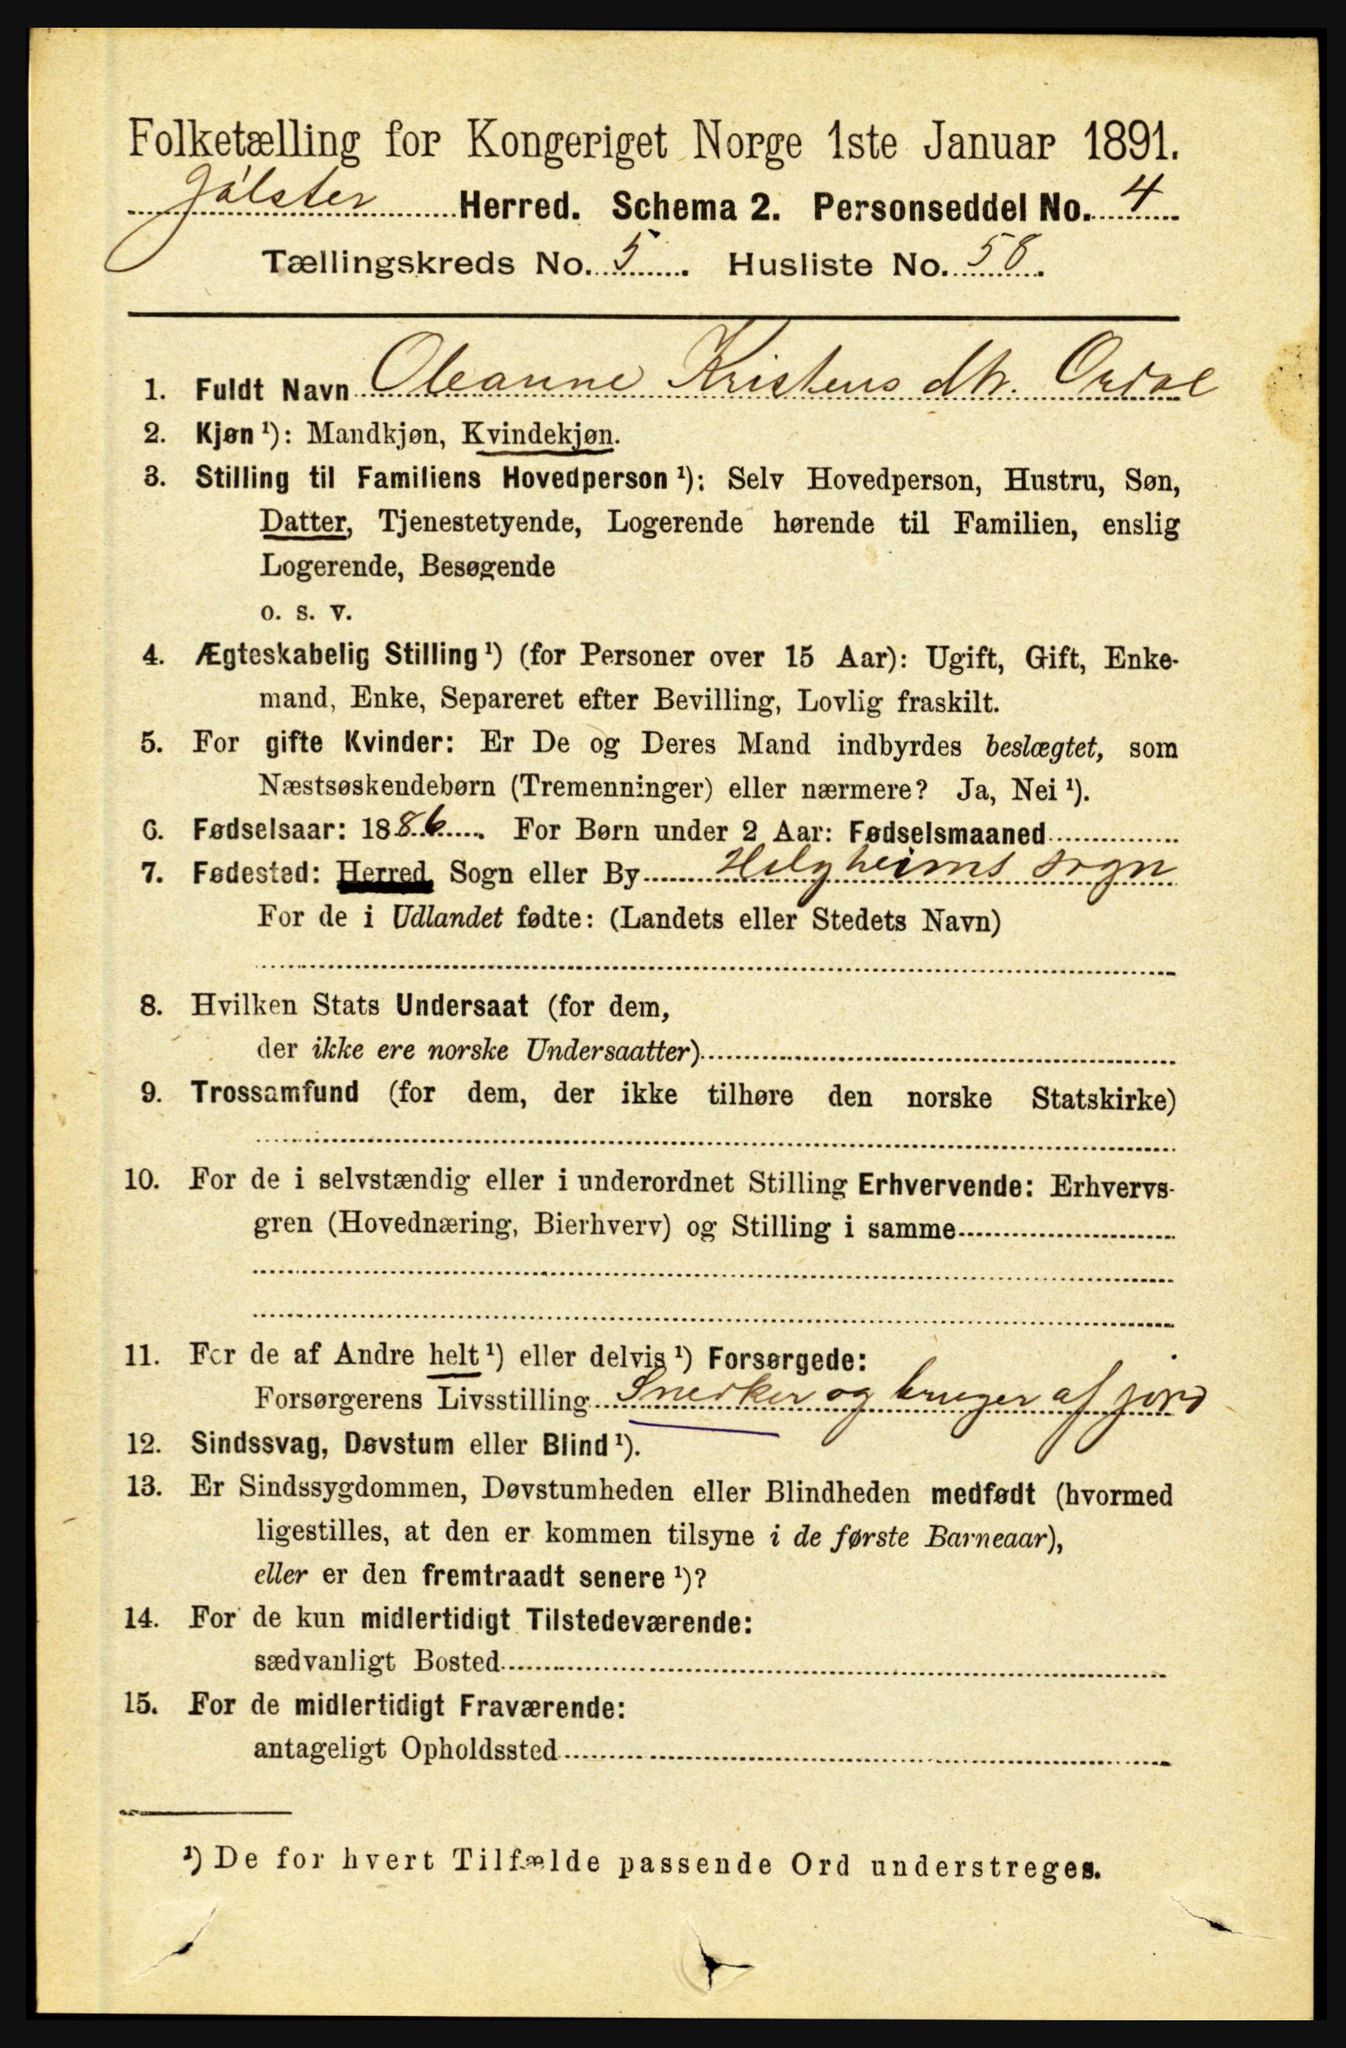 Folketælling for Kongeriget Norge 1ste Januar 1891.
Jølster Herred. Schema 2. Personseddel No. 4
Tællingskreds No. 5. Husliste No. 58.
1. Fuldt Navn Oleanne Kristensdtr. Ordal
2. Kjøn ¹): Mandkjøn, Kvindekjøn.
3. Stilling til Familiens Hovedperson ¹): Selv Hovedperson, Hustru, Søn,
Datter, Tjenestetyende, Logerende hørende til Familien, enslig
Logerende, Besøgende
o. s. v.
4. Ægteskabelig Stilling ¹) (for Personer over 15 Aar): Ugift, Gift, Enke-
mand, Enke, Separeret efter Bevilling, Lovlig fraskilt.
5. For gifte Kvinder: Er De og Deres Mand indbyrdes beslægtet, som
Næstsøskendebørn (Tremenninger) eller nærmere? Ja, Nei ¹).
6. Fødselsaar: 1886. For Børn under 2 Aar: Fødselsmaaned
7. Fødested: Herred, Sogn eller By Helgheims sogn
For de i Udlandet fødte: (Landets eller Stedets Navn)
8. Hvilken Stats Undersaat (for dem,
der ikke ere norske Undersaatter)
9. Trossamfund (for dem, der ikke tilhøre den norske Statskirke)
10. For de i selvstændig eller i underordnet Stilling Erhvervende: Erhvervs-
gren (Hovednæring, Bierhverv) og Stilling i samme
11. For de af Andre helt ¹) eller delvis ¹) Forsørgede:
Forsørgerens Livsstilling Snedker og bruger af jord
12. Sindssvag, Døvstum eller Blind ¹).
13. Er Sindssygdommen, Døvstumheden eller Blindheden medfødt (hvormed
ligestilles, at den er kommen tilsyne i de første Barneaar),
eller er den fremtraadt senere ¹)?
14. For de kun midlertidigt Tilstedeværende:
sædvanligt Bosted
15. For de midlertidigt Fraværende:
antageligt Opholdssted
¹) De for hvert Tilfælde passende Ord understreges.